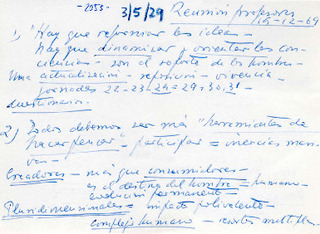 -2053-
3/5/29
Reunión profesores
15-12-69
1) "Hay que refrescar las ideas -
hay que dinamizar y orientar las con-
ciencias - son el soporte de los hombres -
Una actualización - reflexión - vivencia -
jornadas 22-23-24=29+30,31-
cuestionario.
2) Todos debemos ser más "herramientas de
hacer pensar" - participar = inercias man-
Creadores - más que consumidores -
es el destino del hombre = humano -
evolución permanente -
Pluridimensionales - impacto polivalente -
complejo humano - resortes múltiples